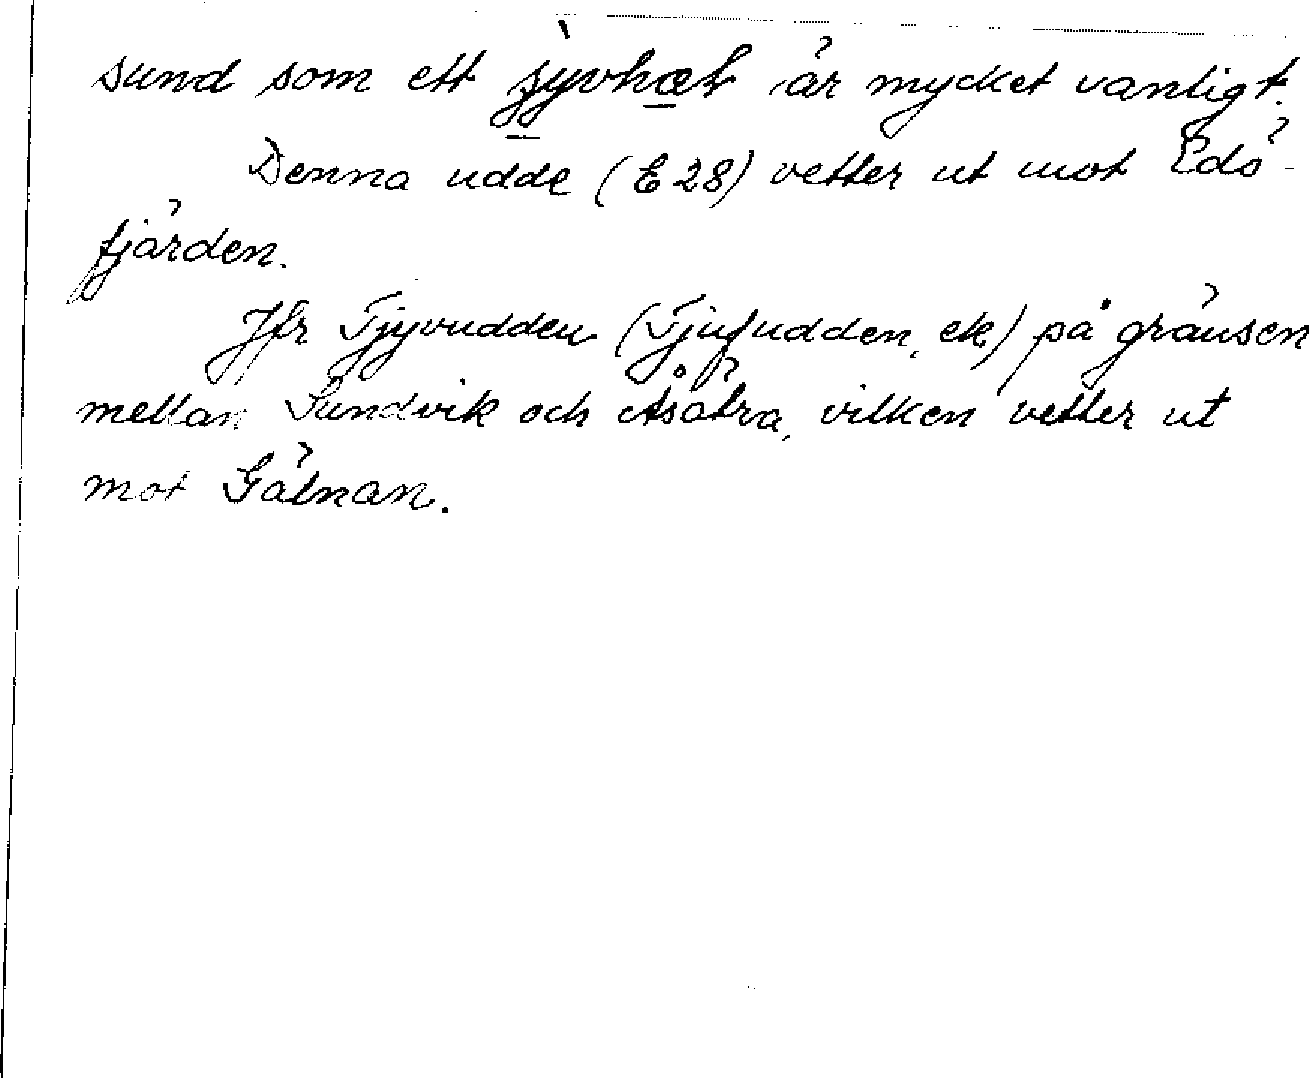 sund som ett är mycket vanligt.
Denna udde (E 28) vetter ut mot Edö-
fjärden.
Jfr Tjyvudden (Tjufudden, ek) på gränsen
mellan Sundvik och Åsätra, vilken vetter ut
mot Gälnan.